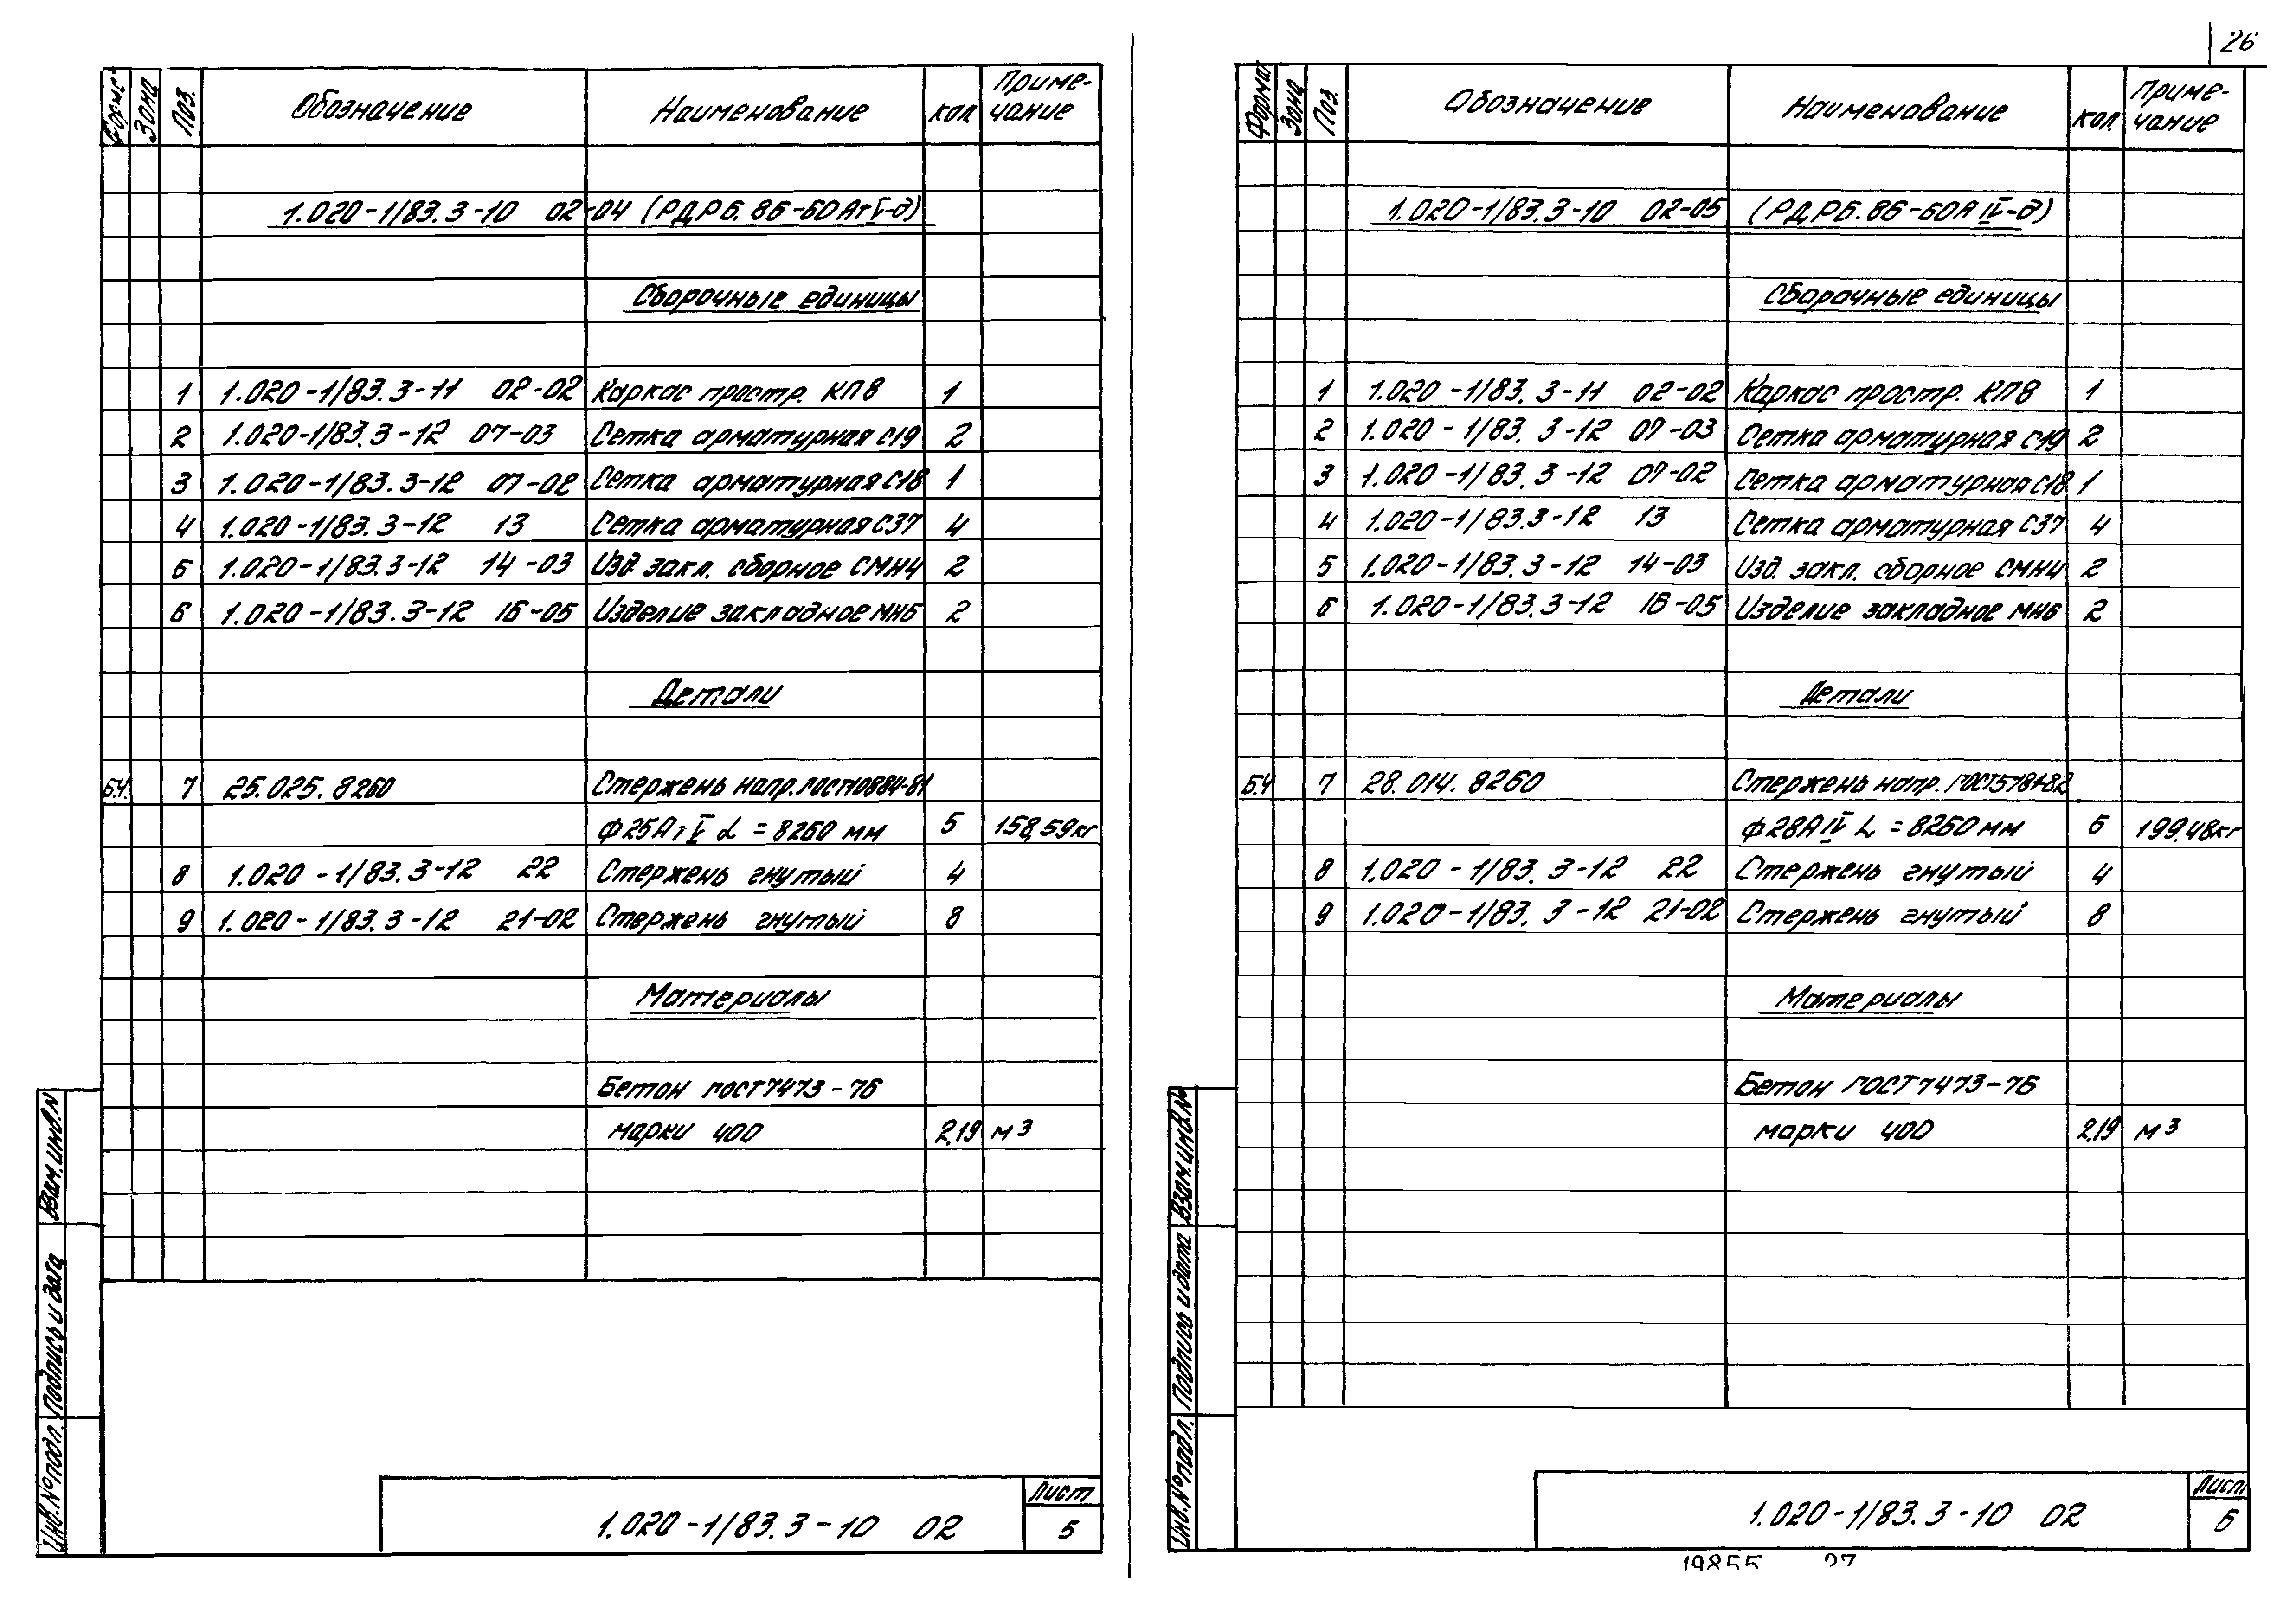 26
Формат Зона Поз. Обозначение Наименование кол Приме-чание
1.020-1/83.3-10 02-04 (РДР6.86-60АтV-д)
Сборочные единицы
1 1.020-1/83.3-11 02-02 Каркас простр. КП8 1
2 1.020-1/83.3-12 07-03 Сетка арматурная С19 2
3 1.020-1/83.3-12 07-02 Сетка арматурная С18 1
4 1.020-1/83.3-12 13 Сетка арматурная С37 4
5 1.020-1/83.3-12 14-03 Изд. закл. сборное СМН4 2
6 1.020-1/83.3-12 16-05 Изделие закладное МН6 2
Детали
Б.Ч. 7 25.025.8260 Стержень напр. ГОСТ10884-81
ф25АтV L=8260 мм 5 158,59кг
8 1.020-1/83.3-12 22 Стержень гнутый 4
9 1.020-1/83.3-12 21-02 Стержень гнутый 8
Материалы
Бетон ГОСТ7473-76
марки 400 2,19 м3
Взам.инв.N
Подпись и дата
Инв.№подл.
1.020-1/83.3-10 02
Лист
5
Формат Зона Поз. Обозначение Наименование кол. Приме-чание
1.020-1/83.3-10 02-05 (РДР6.86-60АIV-д)
Сборочные единицы
1 1.020-1/83.3-11 02-02 Каркас простр. КП8 1
2 1.020-1/83.3-12 07-03 Сетка арматурная С19 2
3 1.020-1/83.3-12 07-02 Сетка арматурная С18 1
4 1.020-1/83.3-12 13 Сетка арматурная С37 4
5 1.020-1/83.3-12 14-03 Изд. закл. сборное СМН4 2
6 1.020-1/83.3-12 16-05 Изделие закладное МН6 2
Детали
БЧ 7 28.014.8260 Стержень напр. ГОСТ5781-82
ф28АIV L=8260 мм 5 199,48кг
8 1.020-1/83.3-12 22 Стержень гнутый 4
9 1.020-1/83.3-12 21-02 Стержень гнутый 8
Материалы
Бетон ГОСТ7473-76
марки 400 2,19 м3
Взам.инв.№
Подпись и дата
Инв.№подл.
1.020-1/83.3-10 02
Лист
6
19855 27